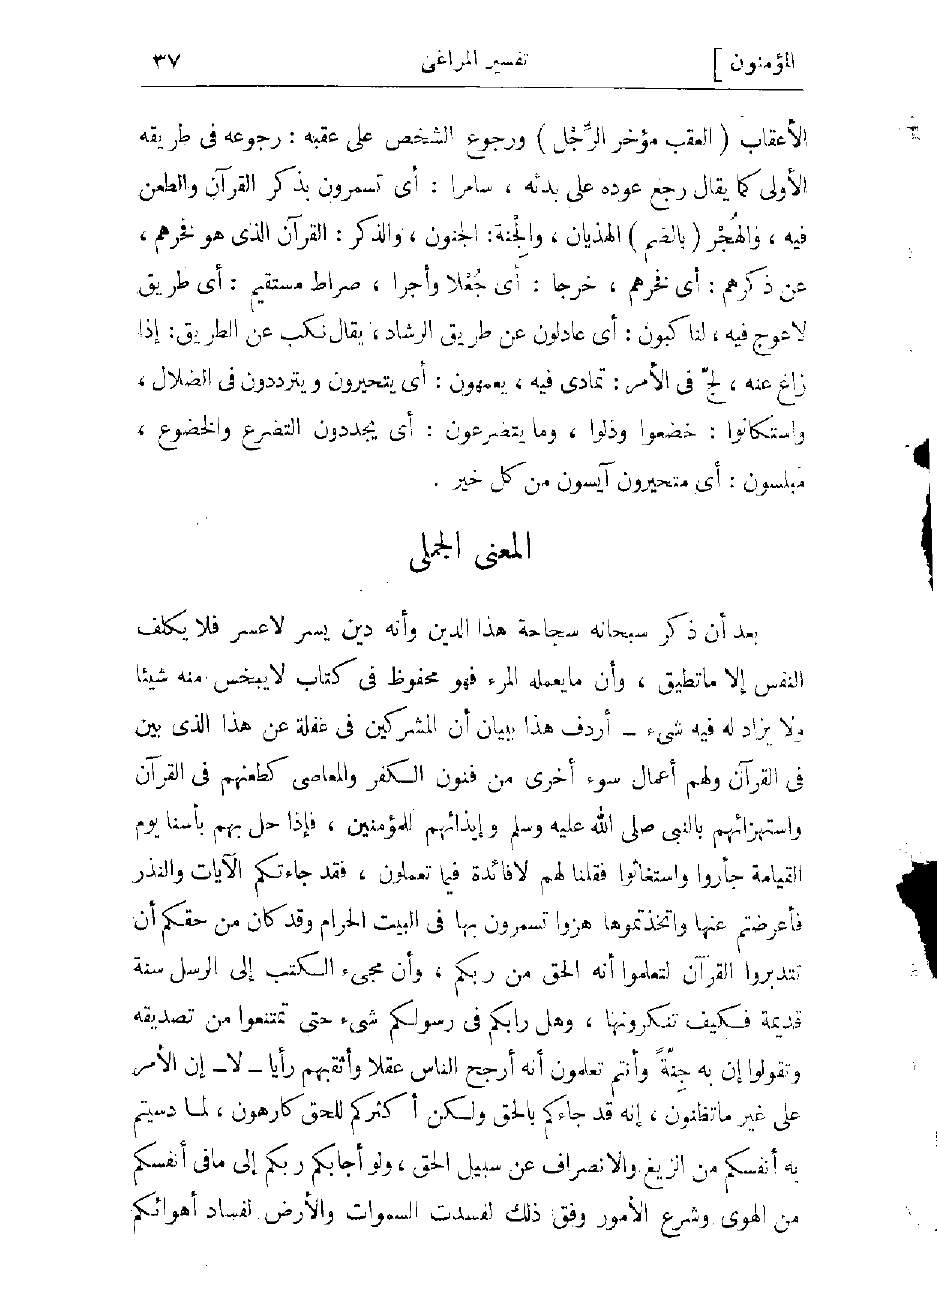 المؤمنون ] تفسير المراغى ٣٧
الأعقاب ( العقب مؤخر الرِّجْل ) ورجوع الشخص على عقبه : رجوعه فى طريقه
الأولى كما يقال رجع عوده على بدئه ، سامرا : أى تسمرون بذكر القرآن والطعن
فيه ، والهُجْر ( بالضم ) الهذيان ، والجِنة : الجنون ، والذكر : القرآن الذى هو فخرهم ،
عن ذكرهم : أى فخرهم ، خرجا : أى جُعْلا وأجرا ، صراط مستقيم : أى طريق
لاعوج فيه ، لناكبون : أى عادلون عن طريق الرشاد ، يقال نكب عن الطريق : إذا
زاغ عنه ، لجّ فى الأمر : تمادى فيه ، يعمهون : أى يتحيرون ويترددون فى الضلال ،
واستكانوا : خضعوا وذلوا ، وما يتضرعون : أى يجددون التضرع والخضوع ،
مبلسون : أى متحيرون آيسون من كل خير .
المعنى الجملى
بعد أن ذكر سبحانه سجاحة هذا الدين وأنه دين يسر لاعسر فلا يكلف
النفس إلا ماتطيق ، وأن مايعمله المرء فهو محفوظ فى كتاب لايبخس منه شيئا
ولا يزاد له فيه شىء – أردف هذا ببيان أن المشركين فى غفلة عن هذا الذى بين
فى القرآن ولهم أعمال سوء أخرى من فنون الكفر والمعاصى كطعنهم فى القرآن
واستهزائهم بالنبى صلى الله عليه وسلم وإيذائهم للمؤمنين ، فإذا حل بهم بأسنا يوم
القيامة جأروا واستغاثوا فقلنا لهم لافائدة فيما تعملون ، فقد جاءتكم الآيات والنذر
فأعرضتم عنها واتخذتموها هزوا تسمرون بها فى البيت الحرام وقد كان من حقكم أن
تتدبروا القرآن لتعلموا أنه الحق من ربكم ، وأن مجىء الكتب إلى الرسل سنة
قديمة فكيف تنكرونها ، وهل رابكم فى رسولكم شىء حتى تمتنعوا من تصديقه
وتقولوا إن به جِنّةً وأنتم تعلمون أنه أرجح الناس عقلا وأثقبهم رأيا – لا – إن الأمر
على غير ماتظنون ، إنه قد جاءكم بالحق ولكن أكثركم للحق كارهون ، لما دسيتم
به أنفسكم من الزيغ والانصراف عن سبيل الحق ، ولو أجابكم ربكم إلى مافى أنفسكم
من الهوى وشرع الأمور وفق ذلك لفسدت السموات والأرض لفساد أهوائكم